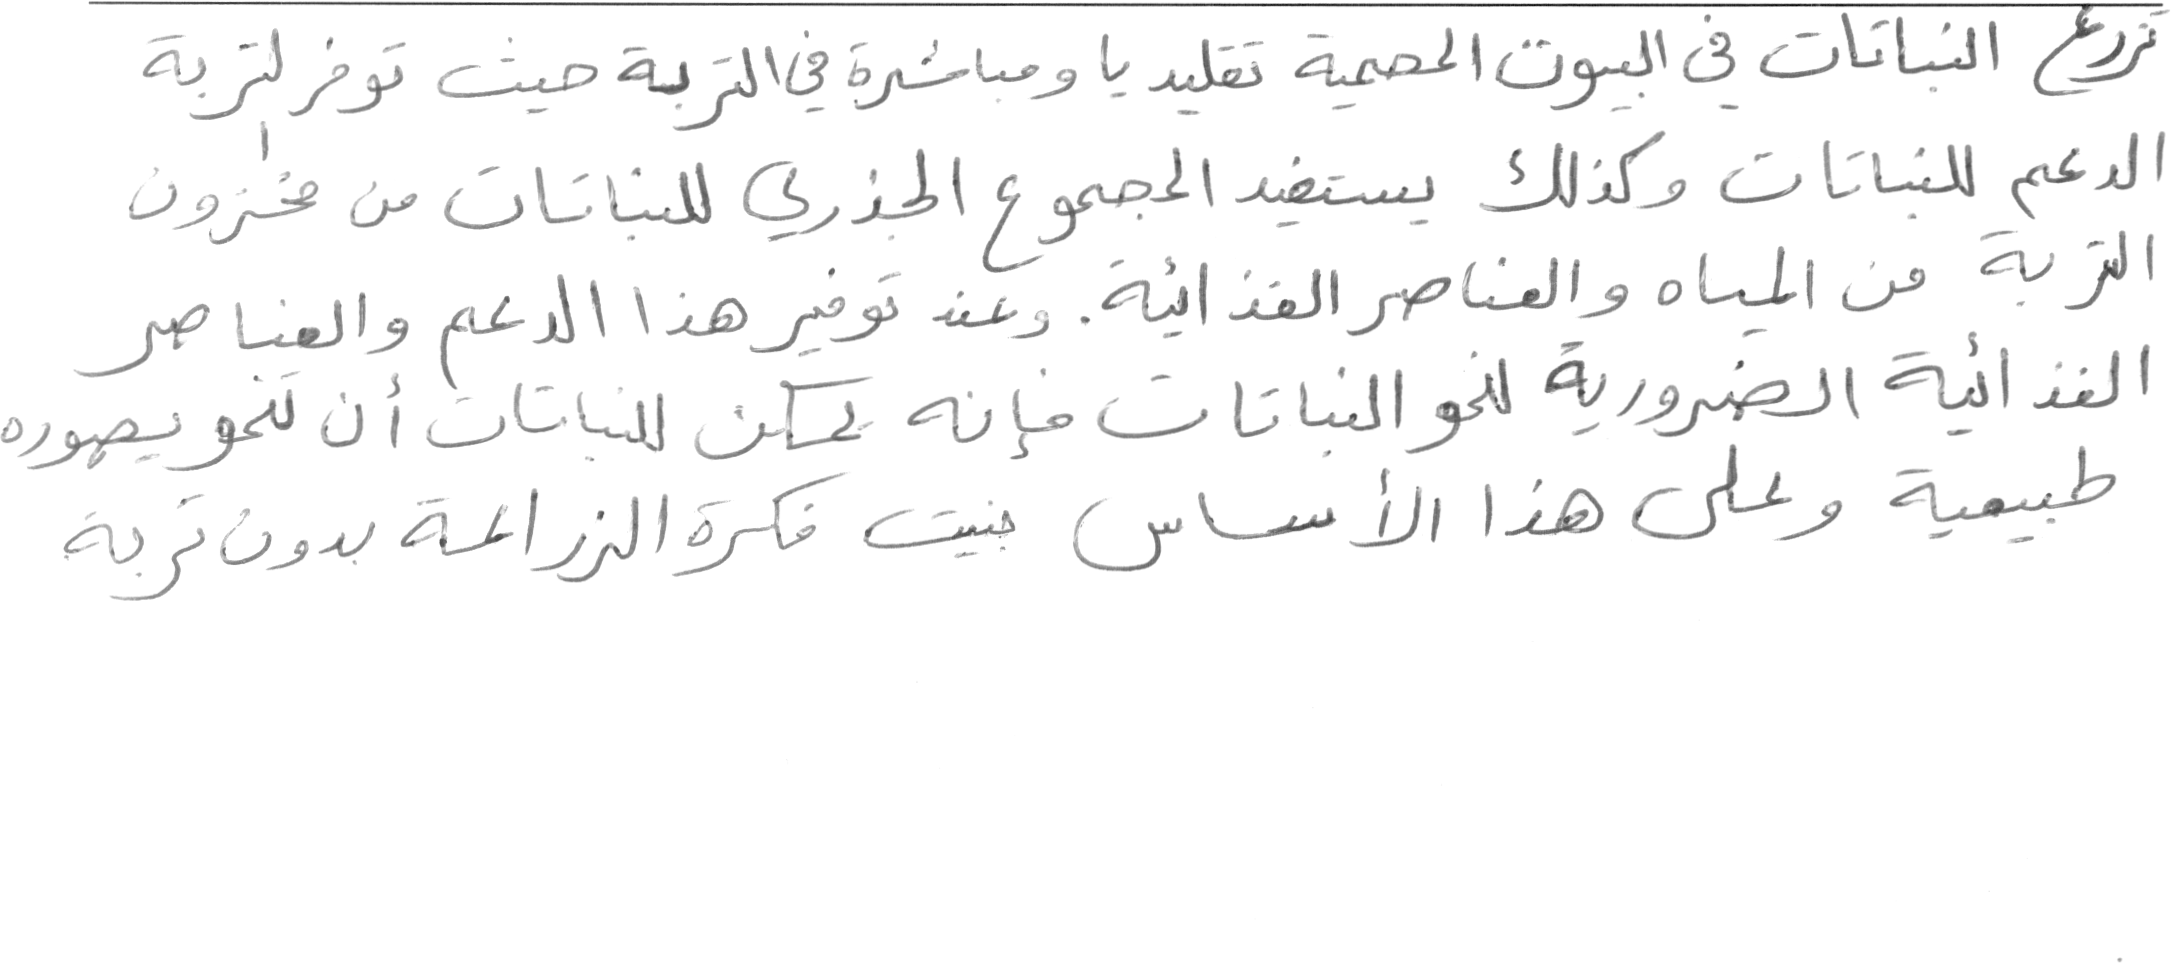 تزرع النباتات في البيوت المحمية تقليديا ومباشرة في التربة حيث توفر لتربة
الدعم للنباتات وكذلك يستفيد المجموع الجذري للنباتات من مخزون
التربة من المياه والعناصر الغذائية. وعند توفير هذا الدعم والعناصر
الغذائية الضرورية لنمو النباتات فإنه يمكن للنباتات أن تنمو بصوره
طبيعية وعلى هذا الأساس بنيت فكرة الزراعة بدون تربة